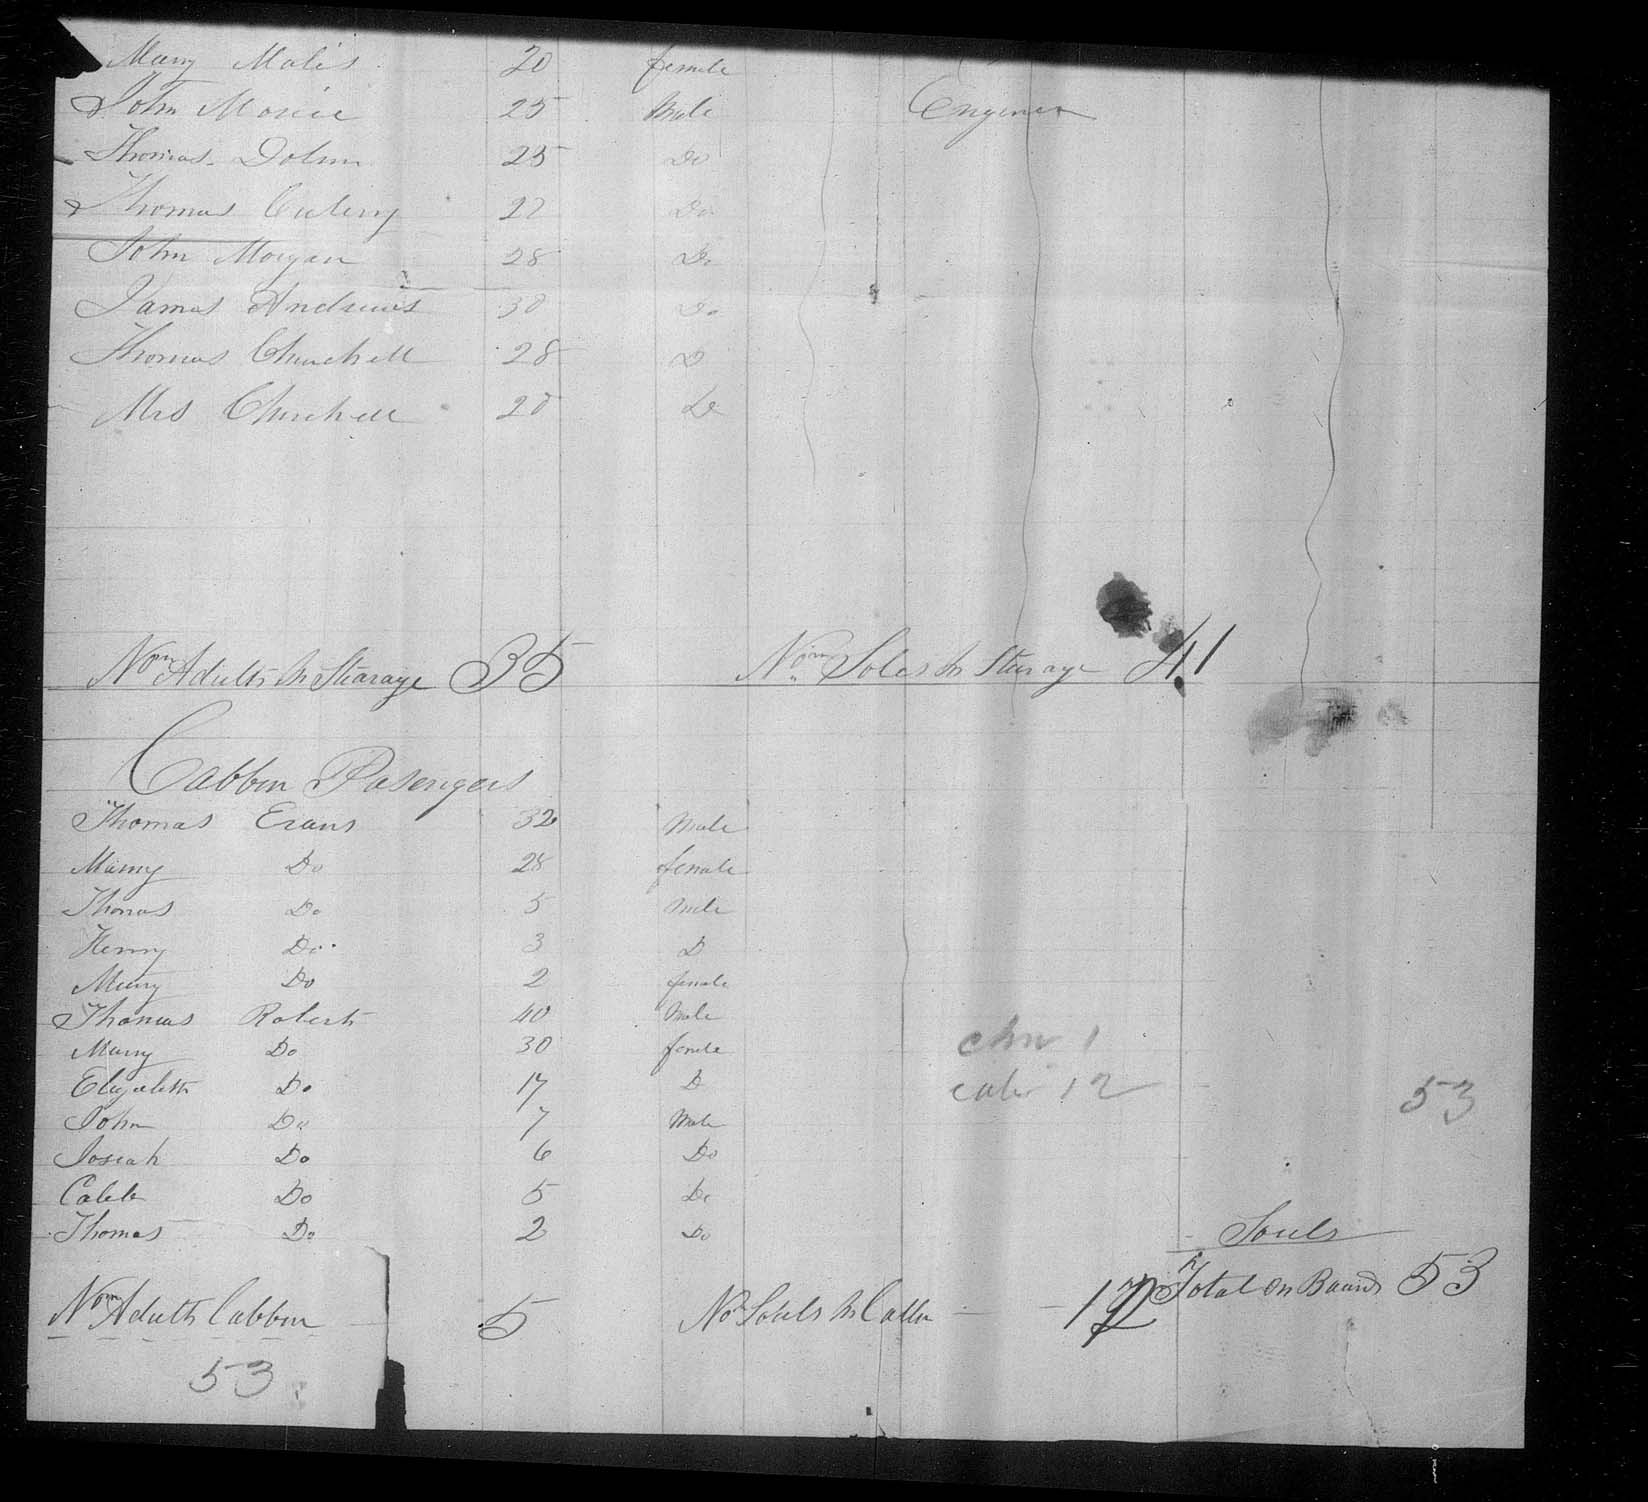 Mary Malis 20 female
John Morice 25 Male Enginer
Thomas Dolm 25 Do
Thomas 27 Do
John Morgan 28 Do
James Andrews 30 Do
Thomas Churchell 28 D
Mrs Churchell 28 Do
Nom Adults In Stearage 35 Nom Soles In Stearage 41
Cabbin Pasengers
Thomas Evans 32 Male
Marry Do 28 female
Thomas Do 5 Male
Henry Do 3 D
Marry Do 2 female
Thomas Roberts 40 Male
Marry Do 30 female
chn 1
Elizabeth Do 17 D
cabn 12 53
John Do 7 Male
Josiah Do 6 Do
Caleb Do 5 Do
Thomas Do 2 Do
Souls
Total On Board 53
Nom Adults Cabbin 5 No Souls In Cabbin 12
53